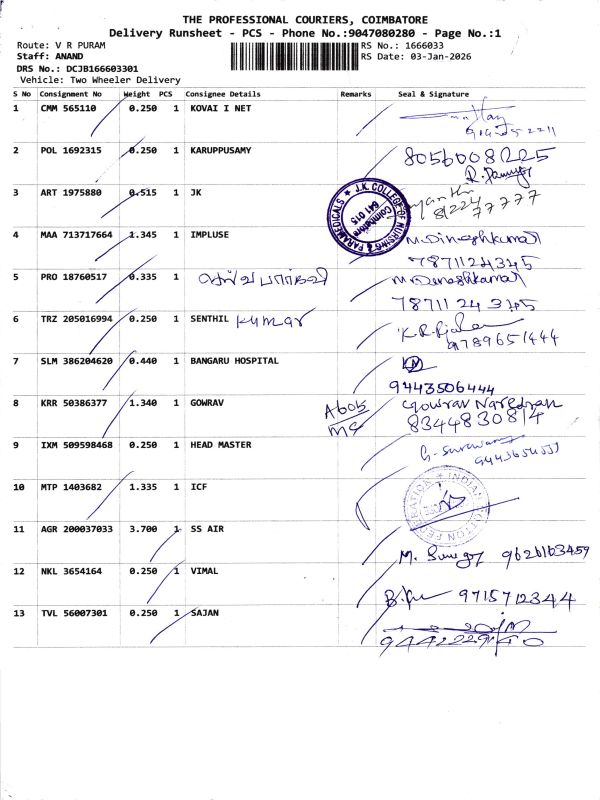 THE PROFESSIONAL COURIERS, COIMBATORE
Delivery Runsheet - PCS - Phone No.:9047080280 - Page No.:1
Route: V R PURAM
RS No.: 1666033
Staff: ANAND
RS Date: 03-Jan-2026
DRS No.: DCJB166603301
Vehicle: Two Wheeler Delivery
S No Consignment No Weight PCS Consignee Details Remarks Seal & Signature
1 CMM 565110 0.250 1 KOVAI I NET
2 POL 1692315 0.250 1 KARUPPUSAMY 8056008225
3 ART 1975880 0.515 1 JK 77777
J.K. COLLEGE OF NURSING & PARAMEDICALS
Coimbatore
641 015
4 MAA 713717664 1.345 1 IMPLUSE M.Dineshkumar
7871124345
5 PRO 18760517 0.335 1 M.Dineshkumar
7871124345
6 TRZ 205016994 0.250 1 SENTHIL kumar
9789651444
7 SLM 386204620 0.440 1 BANGARU HOSPITAL
9443506444
8 KRR 50386377 1.340 1 GOWRAV Gowrav
8344830814
9 IXM 509598468 0.250 1 HEAD MASTER
10 MTP 1403682 1.335 1 ICF
INDIAN COTTON FEDERATION
11 AGR 200037033 3.700 1 SS AIR
9626163459
12 NKL 3654164 0.250 1 VIMAL 9715712344
13 TVL 56007301 0.250 1 SAJAN
9442229140